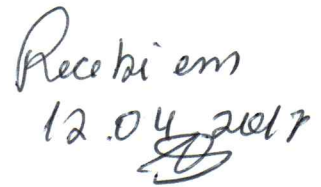 Recebi em
12.04.2017